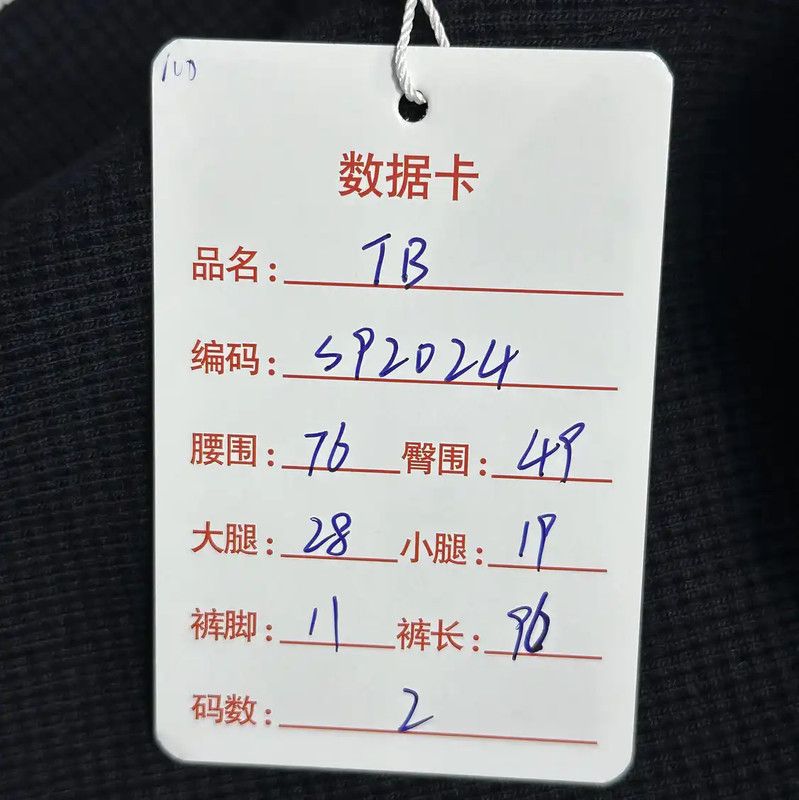 数据卡
品名: TB
编码: SP2024
腰围: 76 臀围: 49
大腿: 28 小腿: 19
裤脚: 11 裤长: 96
码数: 2